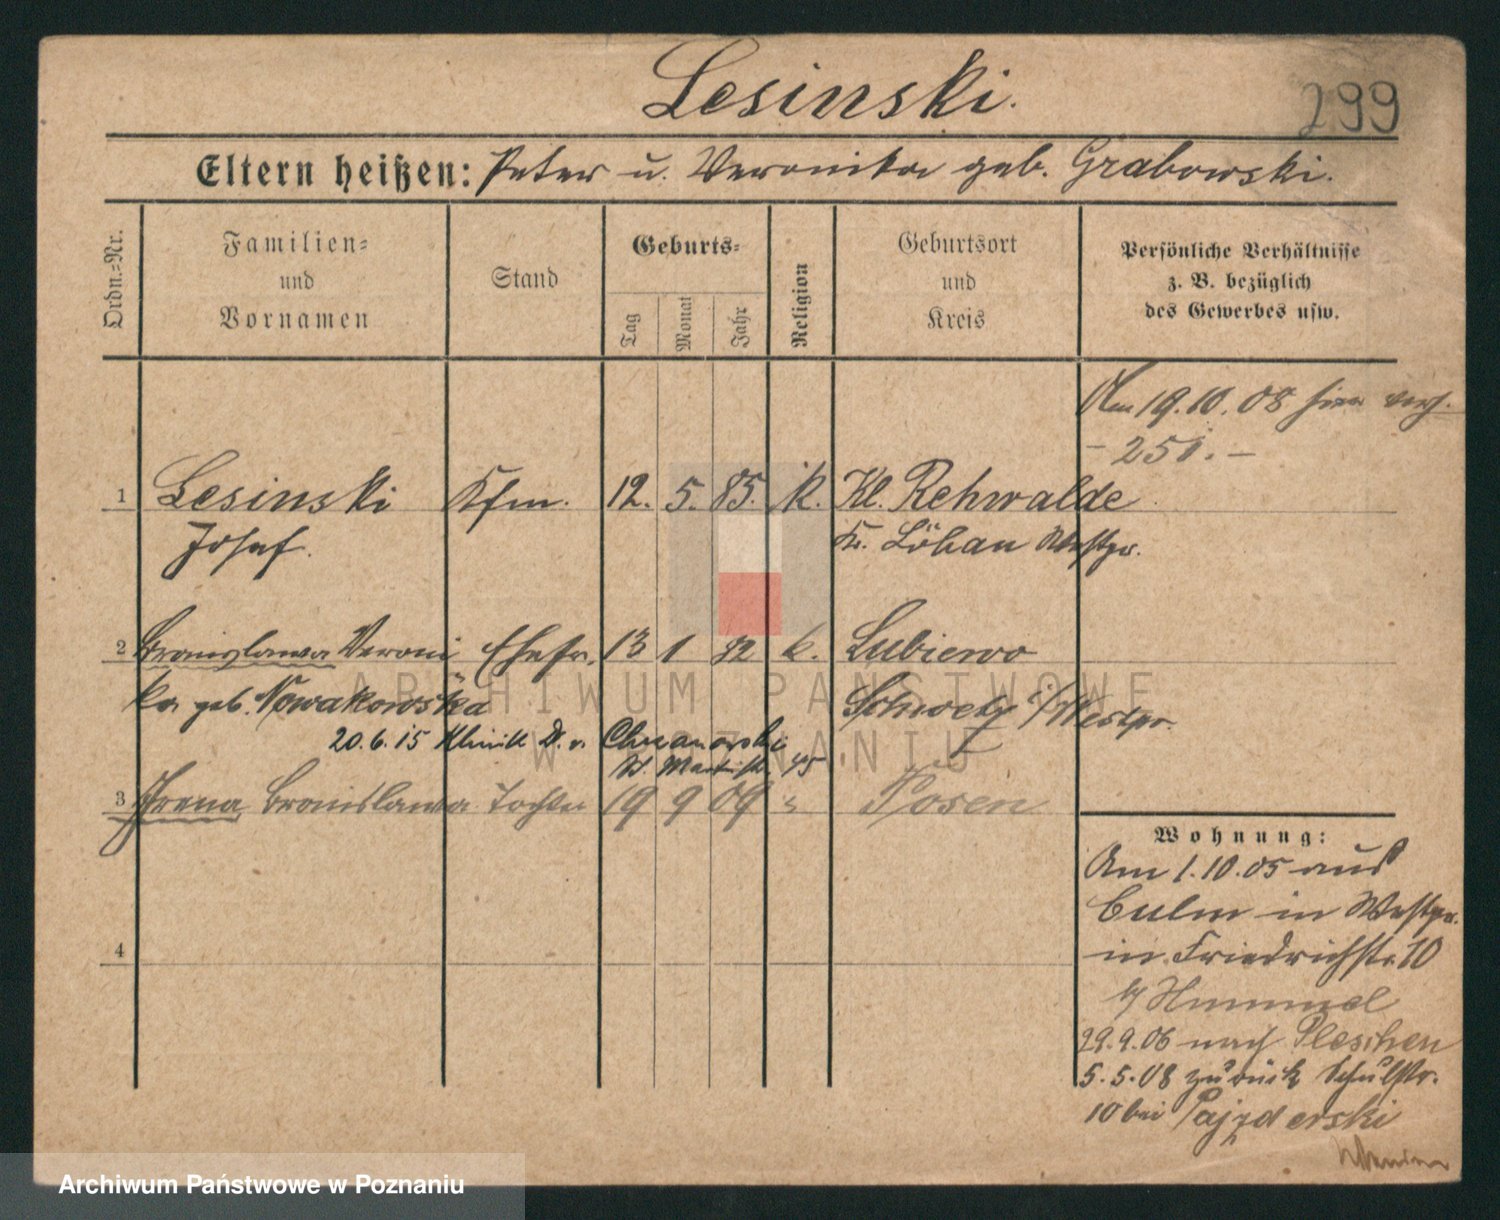 Lesinski.
299
Eltern heißen: Peter u. Veronika geb. Grabowski.
Ordn.=Nr.
Familien=
und
Vornamen
Stand
Geburts=
Tag
Monat
Jahr
Religion
Geburtsort
und
Kreis
Persönliche Verhältnisse
z. B. bezüglich
des Gewerbes usw.
Am 19.10.08 hier verh.
- 251. -
1 Lesinski Kfm. 12. 5. 85. k. Kl. Rehwalde
Josef. Kr. Löbau Westpr.
2 Bronislawa Veroni Ehefr. 13 1 82 k. Lubiewo
ka geb. Nowakowska Schwetz i/Westpr.
20.6.15 Klinik D. v. Chrzanowski
St. Martinstr. 45
3 Irena Bronislawa Tochter 19 9 09 " Posen
4
Wohnung:
Am 1.10.05 aus
Culm in Westpr.
in Friedrichstr. 10
b/ Hummel
29.9.06 nach Pleschen
5.5.08 zurück Schulstr.
10 bei Pajzderski
ARCHIWUM PAŃSTWOWE
W POZNANIU
Archiwum Państwowe w Poznaniu